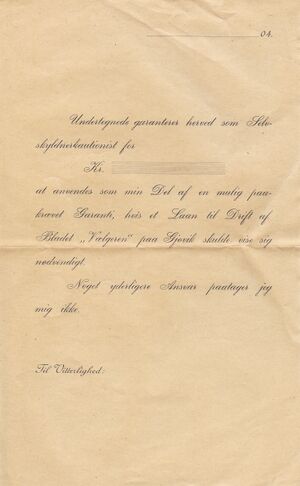 04.
Undertegnede garanterer herved som Selv-
skyldnerkautionist for
Kr.
at anvendes som min Del af en mulig paa-
krævet Garanti, hvis et Laan til Drift af
Bladet „Vælgeren" paa Gjøvik skulde vise sig
nødvendigt.
Noget yderligere Ansvar paatager jeg
mig ikke.
Til Vitterlighed: